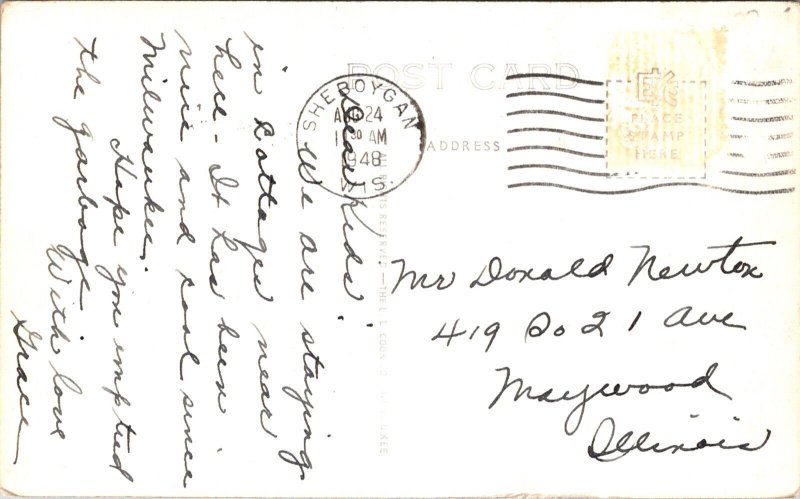 POST CARD
ADDRESS
SHEBOYGAN
AUG 24
30 AM
1948
WIS.
EKC
PLACE
STAMP
HERE
Dear Kids,
We are staying
in Cottages near
here - It has been
nice and cool since
Milwaukee.
Hope you emptied
the garbage
With love
Grace
ALL RIGHTS RESERVED—THE L. L. COOK CO. MILWAUKEE
Mr Donald Newton
419 So 21 Ave
Maywood
Illinois